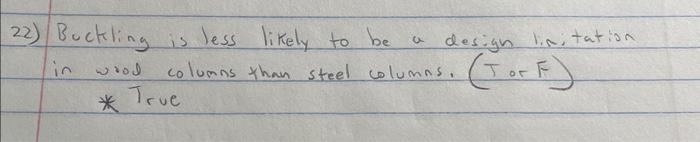 22) Buckling is less likely to be a design limitation
in wood columns than steel columns. (T or F)
* True